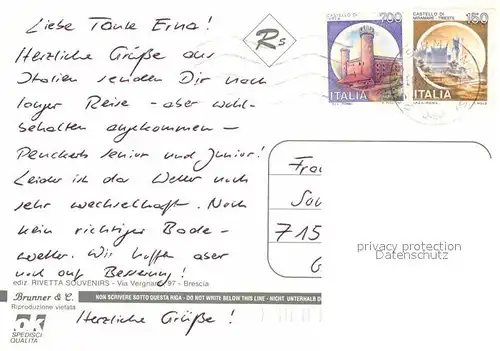 Liebe Tante Erna!
Herzliche Grüße aus
Italien senden Dir nach
langer Reise - aber wohl-
behalten angekommen -
Penckerts senior und Junior!
Leider ist das Wetter noch
sehr wechselhaft. Noch
kein richtiger Bade-
wetter. Wir hoffen aber
noch auf Besserung!
Herzliche Grüße!
Rs
700
ITALIA
CASTELLO DI
MIRAMARE - TRIESTE
150
ITALIA
Frau
715
privacy protection
Datenschutz
ediz. RIVETTA SOUVENIRS - Via Vergnano, 97 - Brescia
Brunner & C.
Riproduzione vietata
NON SCRIVERE SOTTO QUESTA RIGA - DO NOT WRITE BELOW THIS LINE - NICHT UNTERHALB D
SPEDISCI
QUALITÀ